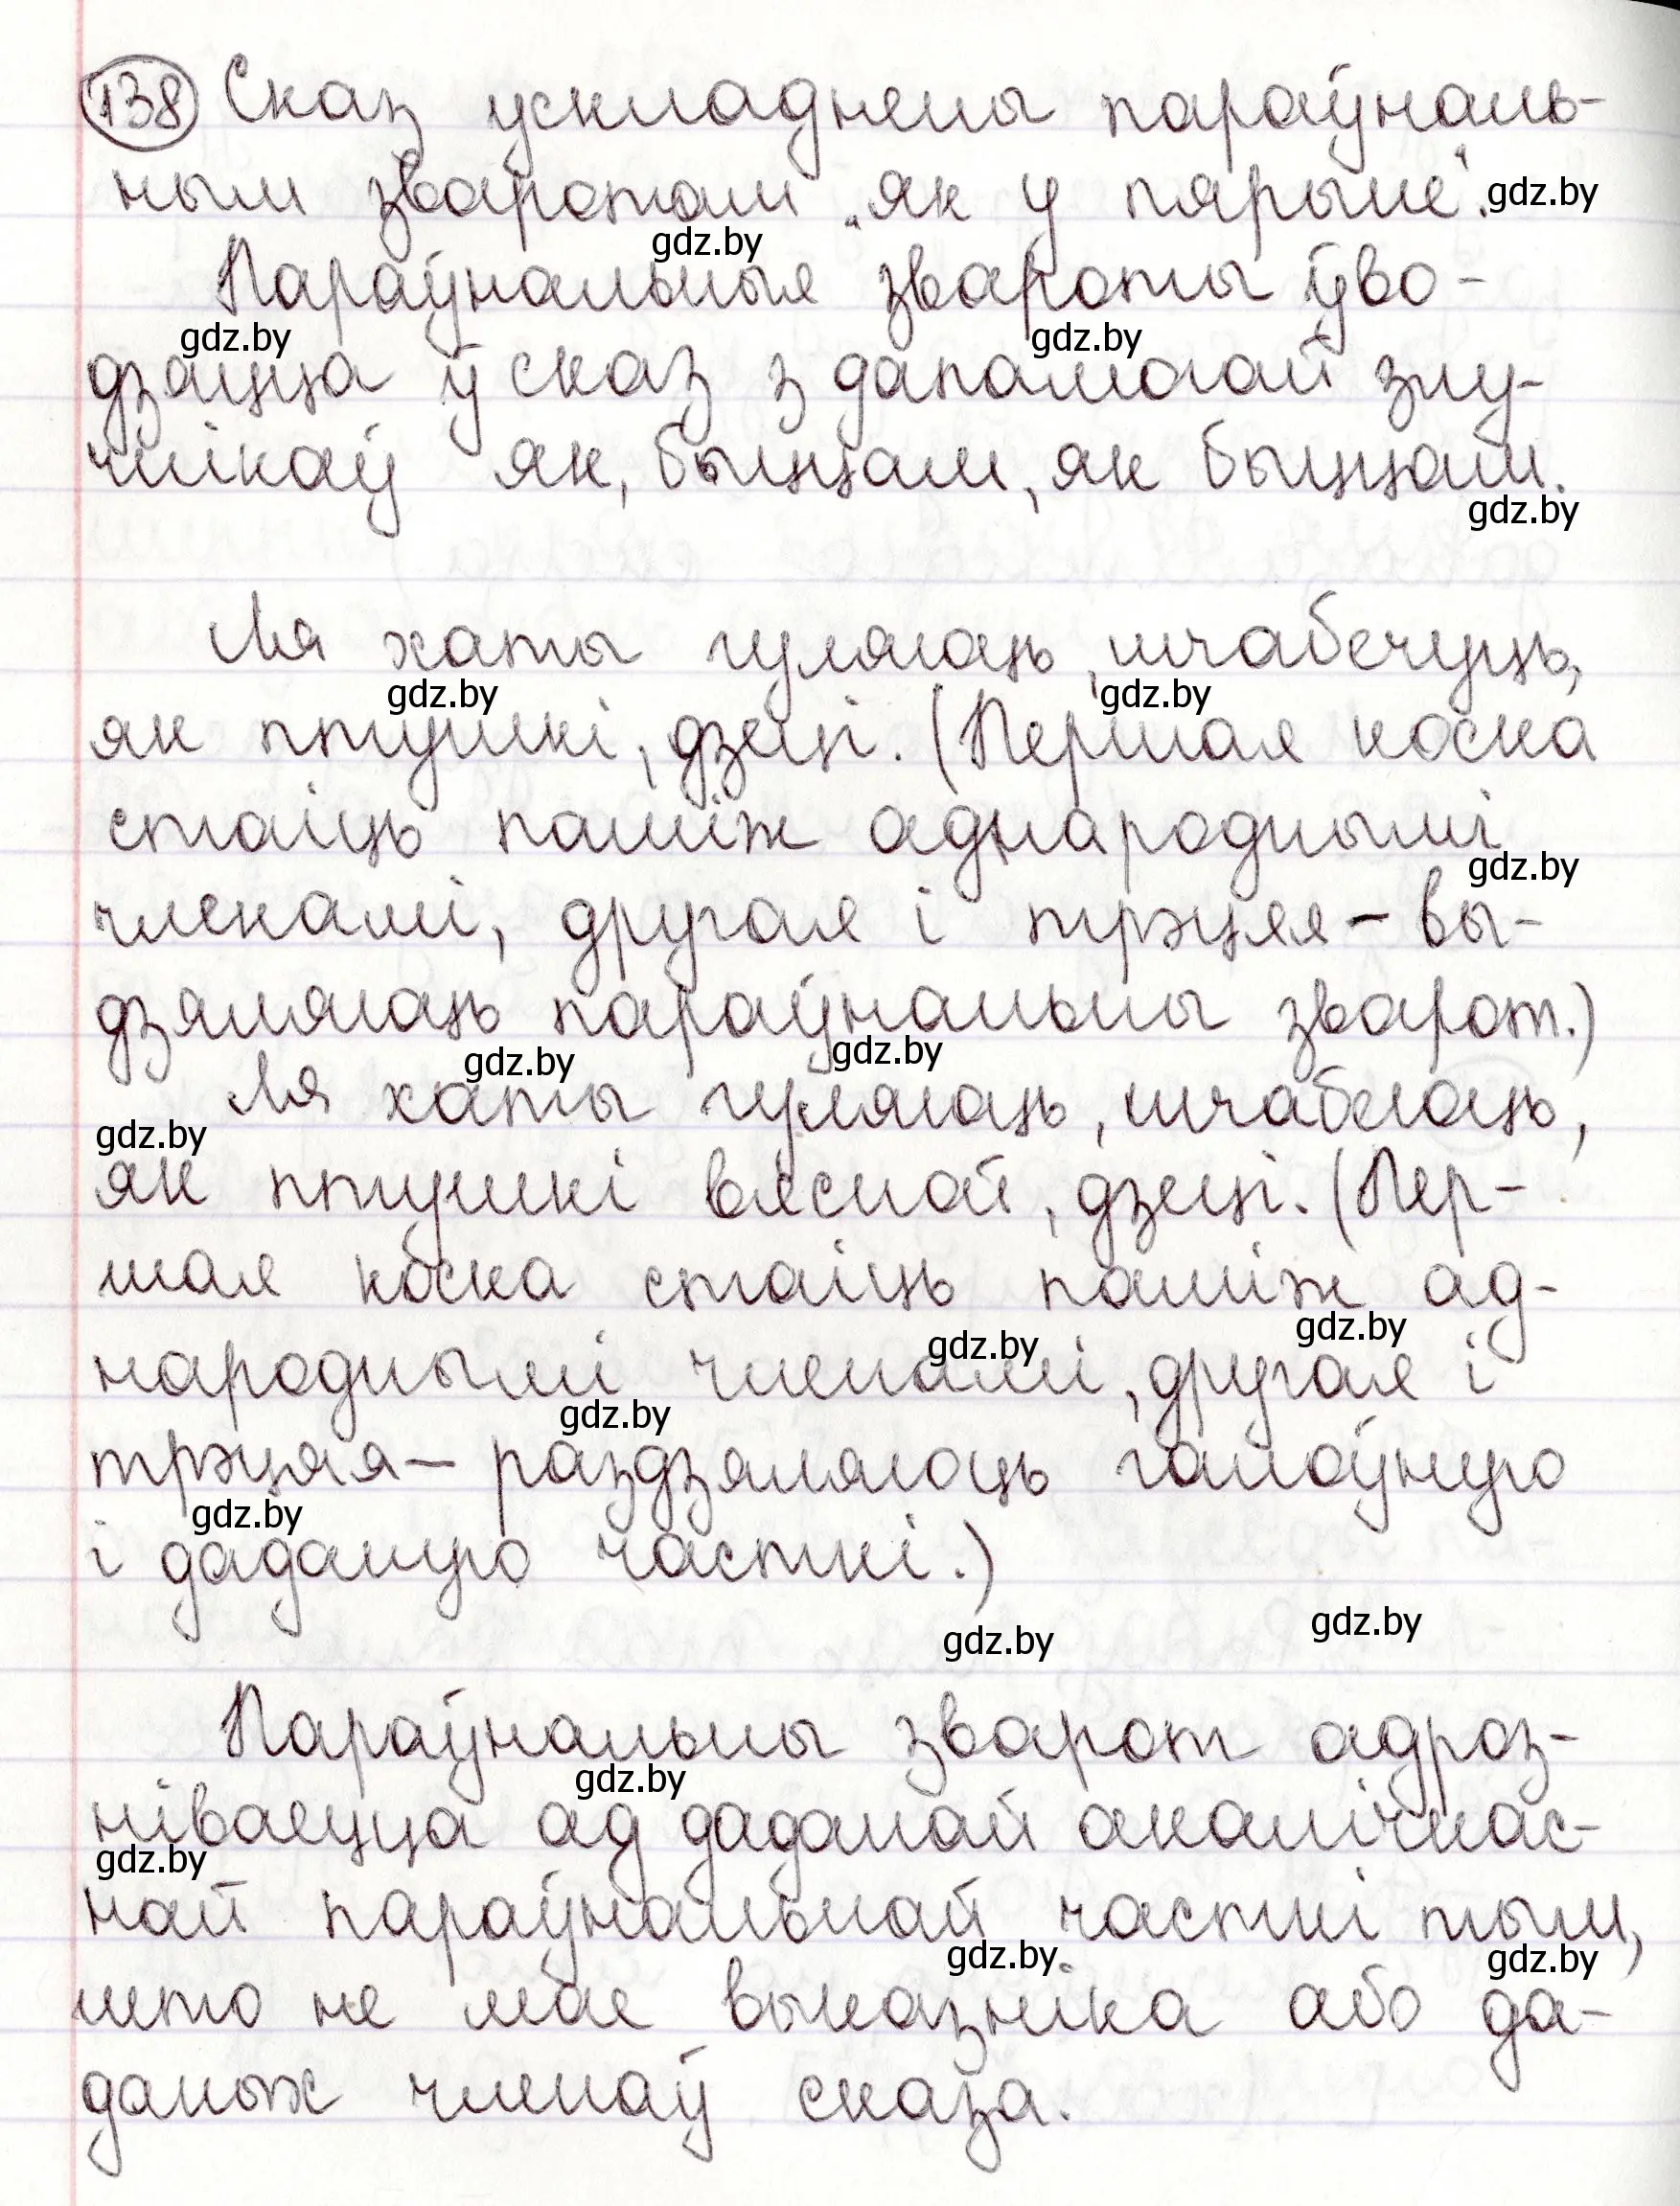 138 Сказ ускладнены параўналь-
ным зваротам „як у пярыне“. gdz.by
gdz.by
Параўнальныя звароты ўво-
gdz.by gdz.by
дзяцца ў сказ з дапамогай злу-
чнікаў як, быццам, як быццам.
gdz.by
Ля хаты гуляюць, шчабечуць,
gdz.by gdz.by
як птушкі, дзеці. (Першая коска
стаіць паміж аднароднымі
gdz.by
членамі, другая і трэцяя – вы-
дзяляюць параўнальны зварот.)
gdz.by gdz.by
Ля хаты гуляюць, шчабечаць,
gdz.by
як птушкі вясной, дзеці. (Пер-
шая коска стаіць паміж ад-
gdz.by gdz.by
народнымі членамі, другая і
gdz.by
трэцяя – раздзяляюць галоўную
gdz.by
і даданую часткі.)
gdz.by gdz.by
Параўнальны зварот адроз-
gdz.by
ніваецца ад даданай акалічнас-
gdz.by
най параўнальнай часткі тым,
gdz.by gdz.by
што не мае выказніка або да-
даных членаў сказа.